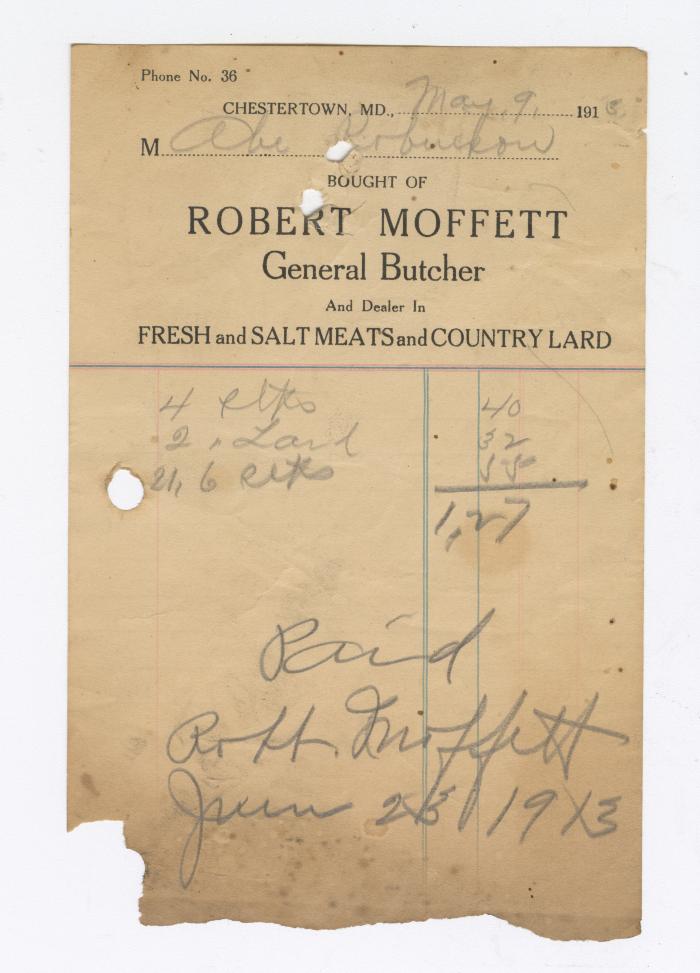 Phone No. 36
CHESTERTOWN, MD., May, 9, 1913
M Abe
BOUGHT OF
ROBERT MOFFETT
General Butcher
And Dealer In
FRESH and SALT MEATS and COUNTRY LARD
4 40
2, Lard 32
21, 6 55
1,27
Paid
Robt. Moffett
June 23 1913